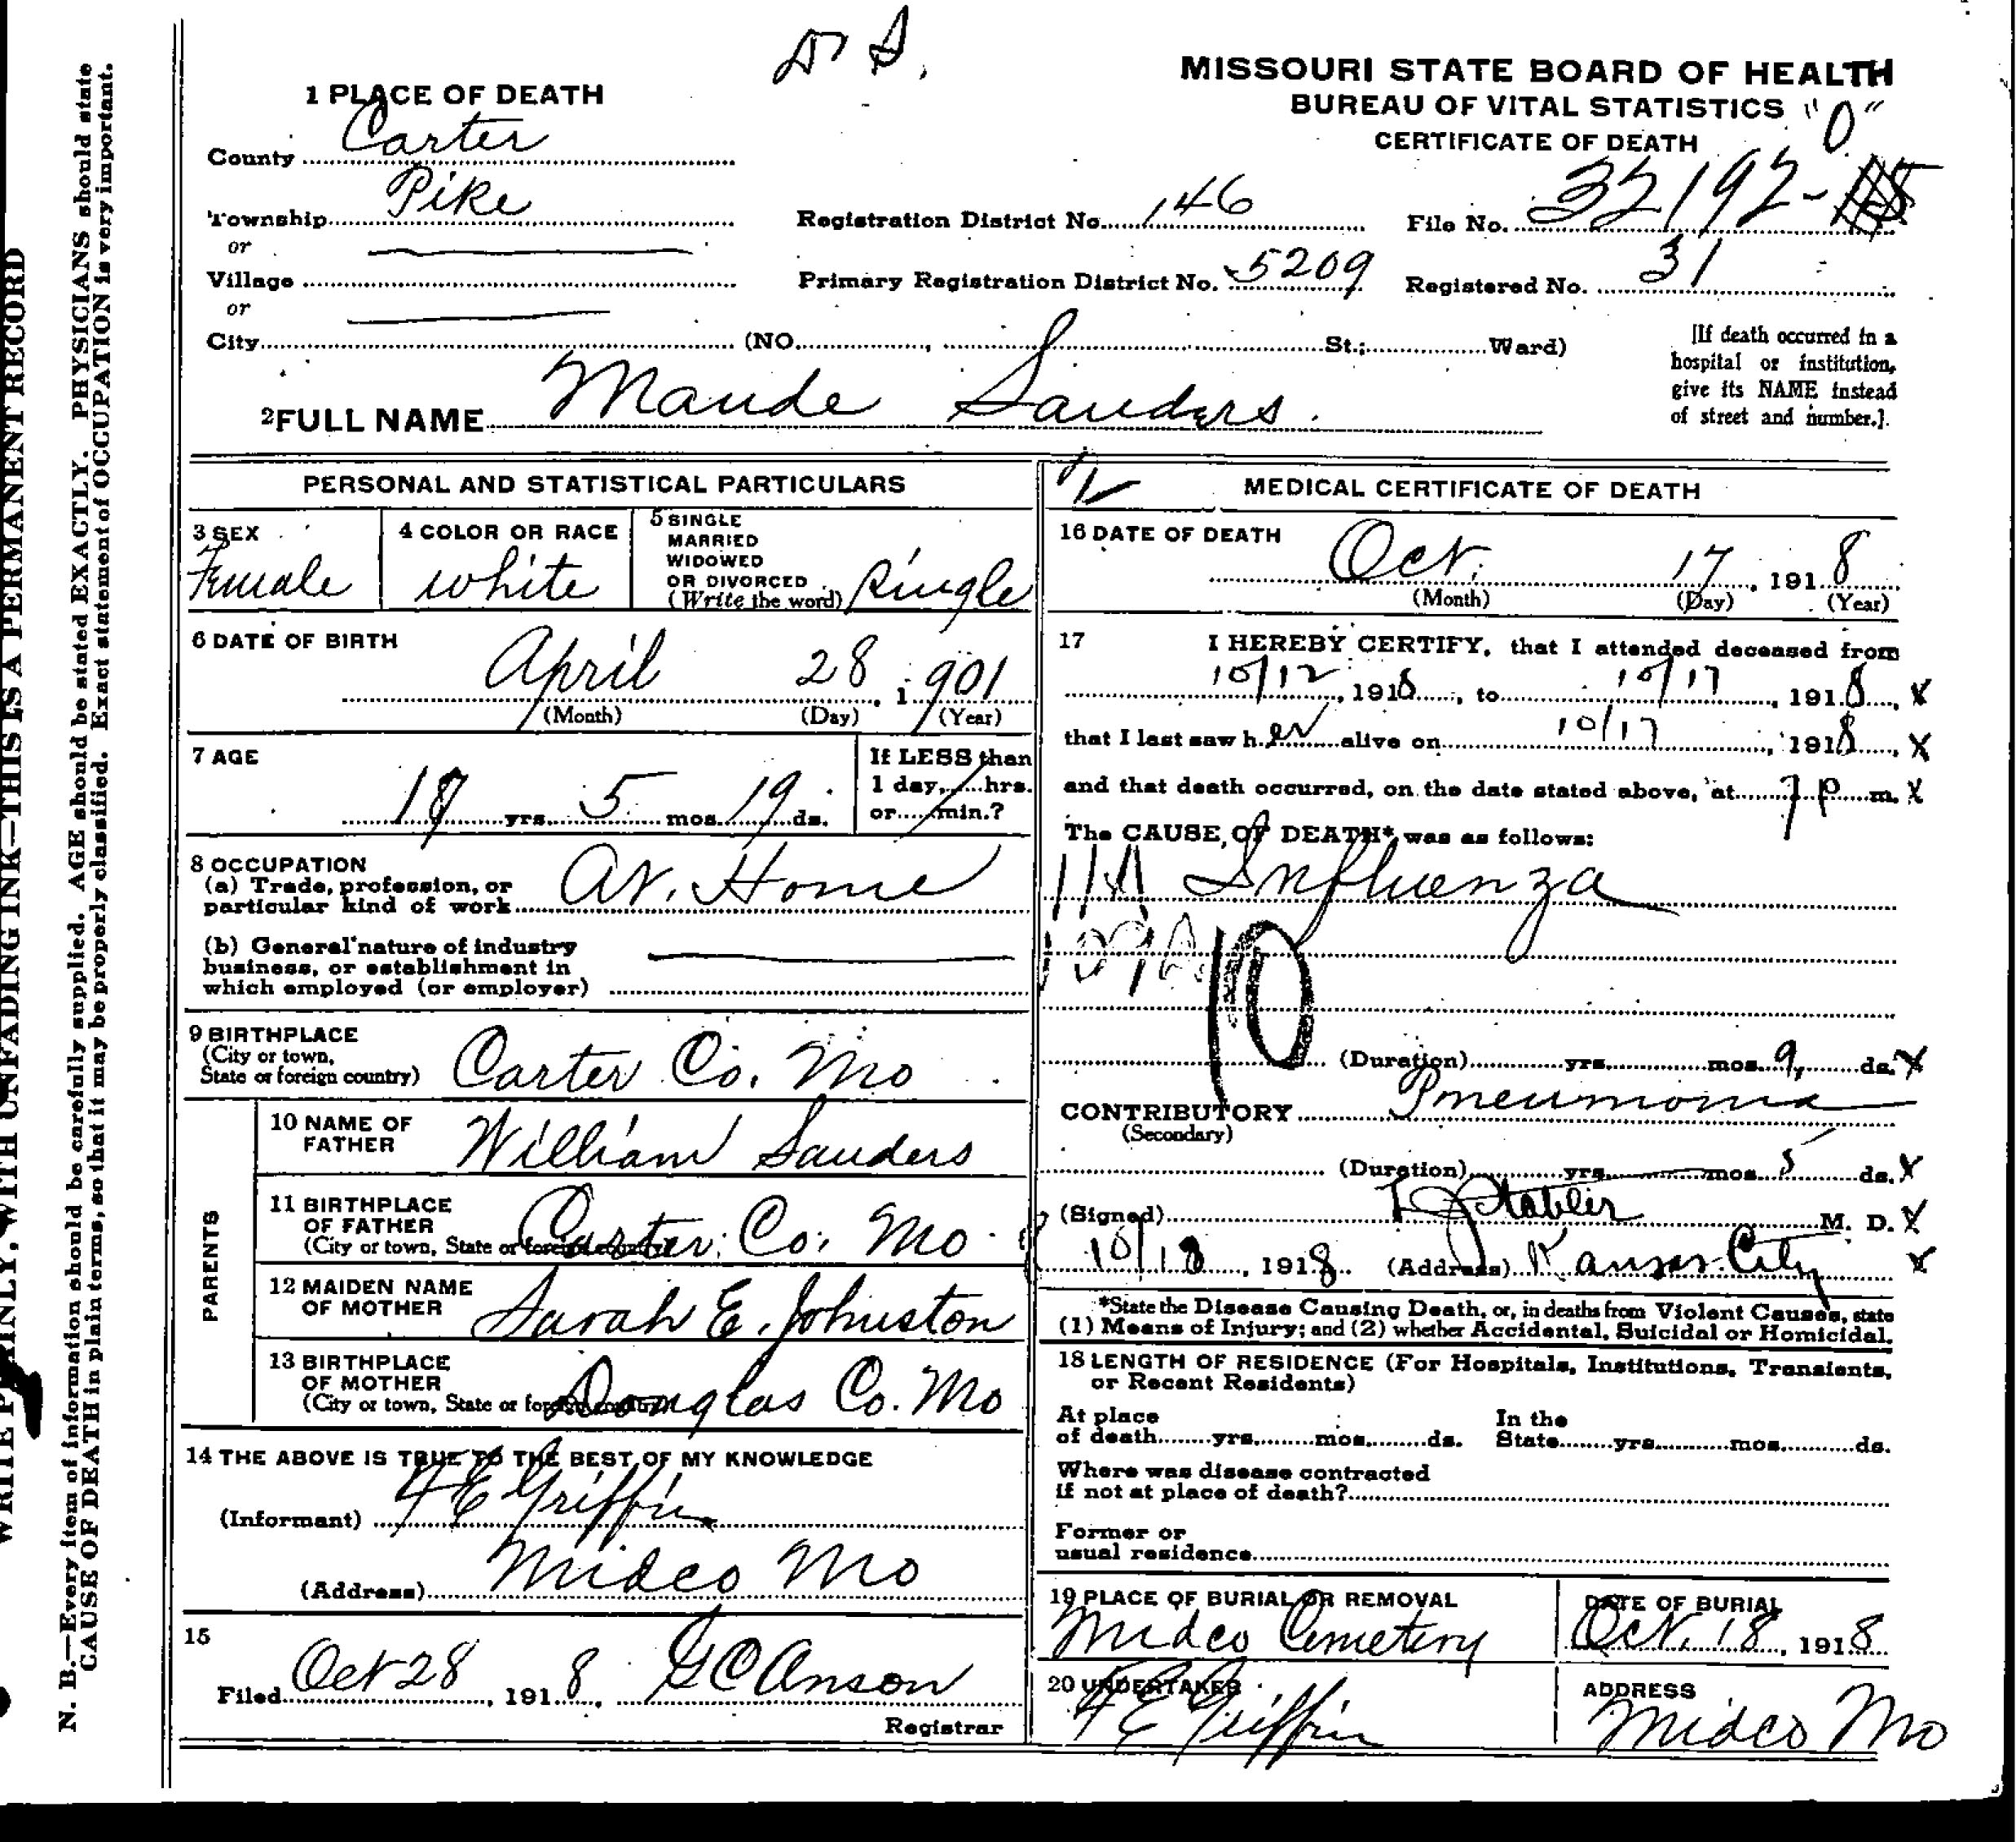 D S.
MISSOURI STATE BOARD OF HEALTH
BUREAU OF VITAL STATISTICS "0"
CERTIFICATE OF DEATH
1 PLACE OF DEATH
County Carter
Township Pike
or
Village
or
City (NO. , St.; Ward)
Registration District No. 146 File No. 32192-
Primary Registration District No. 5209 Registered No. 31
[If death occurred in a
hospital or institution,
give its NAME instead
of street and number.].
2 FULL NAME Maude Sauders.
PERSONAL AND STATISTICAL PARTICULARS
3 SEX
Female
4 COLOR OR RACE
white
5 SINGLE
MARRIED
WIDOWED
OR DIVORCED
(Write the word) Single
6 DATE OF BIRTH
April 28, 1901
(Month) (Day) (Year)
7 AGE
yrs. 5 mos. 19 ds.
If LESS than
1 day, hrs.
or min.?
8 OCCUPATION
(a) Trade, profession, or
particular kind of work At. Home
(b) General nature of industry
business, or establishment in
which employed (or employer)
9 BIRTHPLACE
(City or town,
State or foreign country) Carter Co. Mo
PARENTS
10 NAME OF
FATHER William Sauders
11 BIRTHPLACE
OF FATHER
(City or town, State or foreign country) Carter Co. Mo
12 MAIDEN NAME
OF MOTHER Sarah E. Johnston
13 BIRTHPLACE
OF MOTHER
(City or town, State or foreign country) Douglas Co. Mo
14 THE ABOVE IS TRUE TO THE BEST OF MY KNOWLEDGE
(Informant) F E Griffin
(Address) Midco Mo
15
Filed Oct 28, 1918, G C Anson
Registrar
MEDICAL CERTIFICATE OF DEATH
16 DATE OF DEATH
Oct. 17, 1918
(Month) (Day) (Year)
17 I HEREBY CERTIFY, that I attended deceased from
10/12, 1918, to 10/17, 1918, x
that I last saw her alive on 10/17, 1918, x
and that death occurred, on the date stated above, at 7 p m. x
The CAUSE OF DEATH* was as follows:
11A Influenza
10
(Duration) yrs. mos. 9, ds. x
CONTRIBUTORY Pneumonia
(Secondary)
(Duration) yrs. mos. 5 ds. x
(Signed) M. D. x
10/18, 1918. (Address) Kansas City x
*State the Disease Causing Death, or, in deaths from Violent Causes, state
(1) Means of Injury; and (2) whether Accidental, Suicidal or Homicidal.
18 LENGTH OF RESIDENCE (For Hospitals, Institutions, Transients,
or Recent Residents)
At place
of death yrs. mos. ds.
In the
State yrs. mos. ds.
Where was disease contracted
if not at place of death?
Former or
usual residence
19 PLACE OF BURIAL OR REMOVAL
Midco Cemetery
DATE OF BURIAL
Oct. 18, 1918
20 UNDERTAKER
F E Griffin
ADDRESS
Midco Mo
WRITE PLAINLY, WITH UNFADING INK—THIS IS A PERMANENT RECORD
N. B.—Every item of information should be carefully supplied. AGE should be stated EXACTLY. PHYSICIANS should state
CAUSE OF DEATH in plain terms, so that it may be properly classified. Exact statement of OCCUPATION is very important.